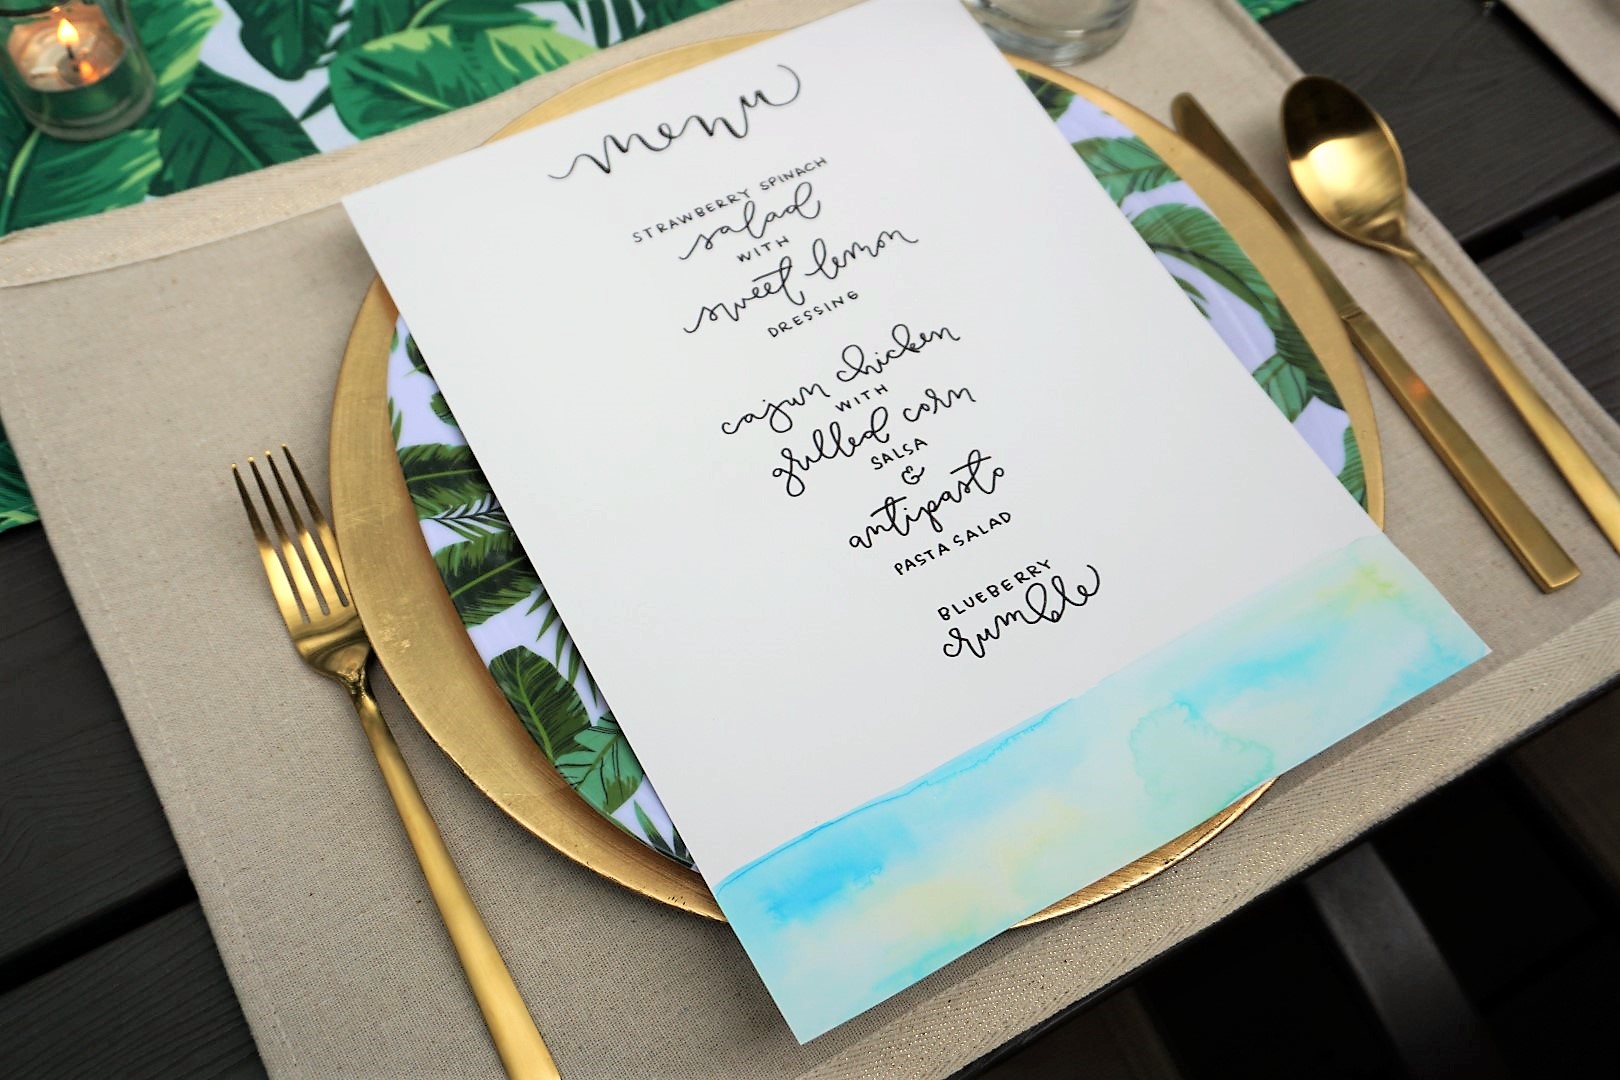 menu
STRAWBERRY SPINACH
salad
WITH
sweet lemon
DRESSING
cajun chicken
WITH
grilled corn
SALSA
&
antipasto
PASTA SALAD
BLUEBERRY
crumble